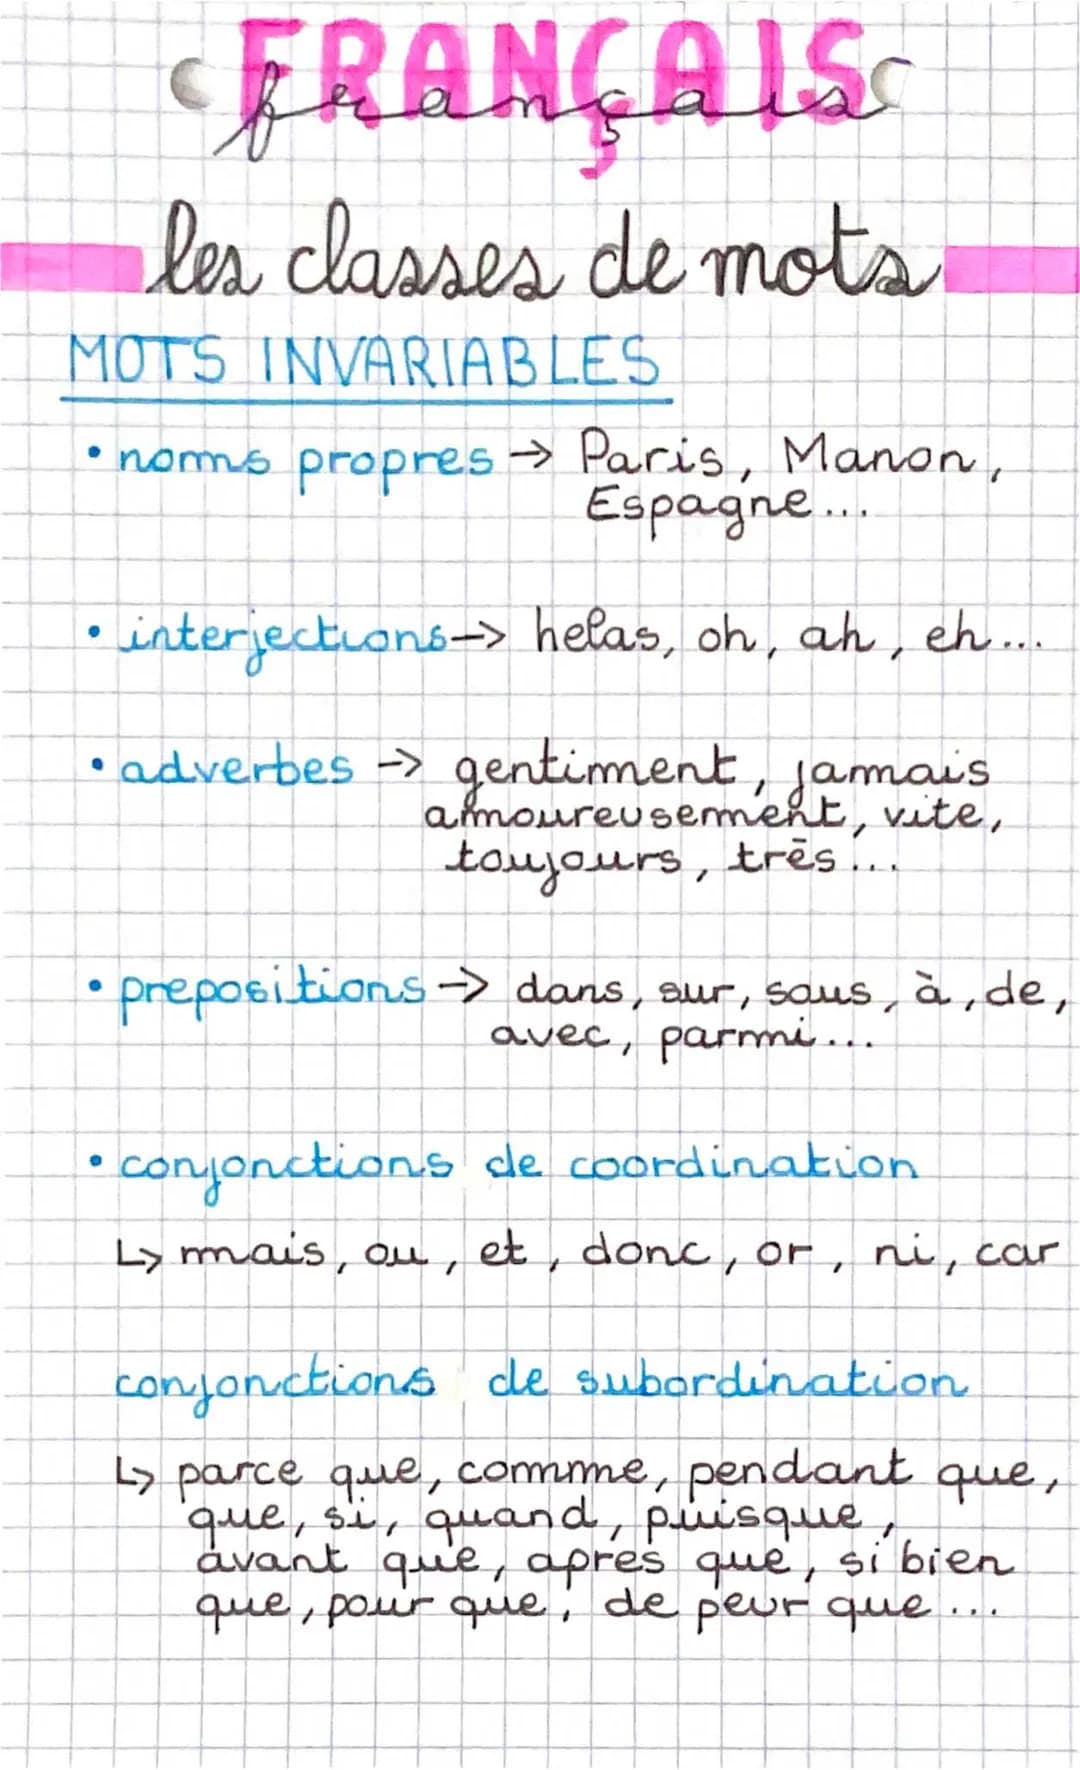 FRANÇAIS
français
les classes de mots
MOTS INVARIABLES
• noms propres → Paris, Manon,
Espagne...
• interjections → helas, oh, ah, eh...
• adverbes → gentiment, jamais
amoureusement, vite,
toujours, très...
• prepositions → dans, sur, sous, à, de,
avec, parmi...
• conjonctions de coordination
↳ mais, ou, et, donc, or, ni, car
conjonctions de subordination
↳ parce que, comme, pendant que,
que, si, quand, puisque,
avant que, apres que, si bien
que, pour que, de peur que...